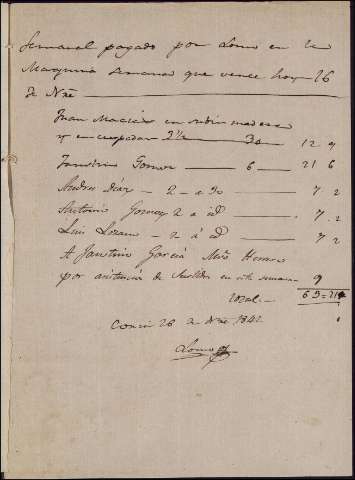 Semanal pagado por Lomo en la
Maquina semana que vence hoy 26
de Nre
Juan Macias en subir madera
y en crepadas 3½ 30 12 9
Faustino Gomez — 6 — 21 6
Andres Diaz — 2 — a 30 — 7 2
Antonio Gomez 2 a id — 7 2
Luis Lozano — 2 a id — 7 2
A Faustino Garcia Mro Herrero
por asistencia de en esta semana 9
Total — 63 = 21
26 de Nre 1842
Lomo